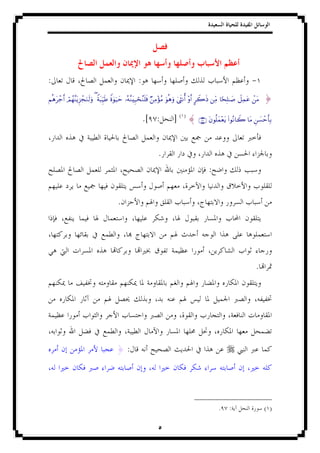 الوسائل المفيدة للحياة السعيدة
فصل
أعظم الأسباب وأصلها وأسها هو الإيمان والعمل الصالح
١- وأعظم الأسباب لذلك وأصلها وأسها هو: الإيمان والعمل الصالح، قال تعالى:
﴿ مَنْ عَمِلَ صَالِحًا مِّن ذَكَرٍ أَوْ أُنثَىٰ وَهُوَ مُؤْمِنٌ فَلَنُحْيِيَنَّهُ حَيَوٰةً طَيِّبَةً ۖ وَلَنَجْزِيَنَّهُمْ أَجْرَهُم
بِأَحْسَنِ مَا كَانُوا يَعْمَلُونَ ﴾ (١) [النحل: ٩٧].
فأخبر تعالى ووعد من جمع بين الإيمان والعمل الصالح بالحياة الطيبة في هذه الدار،
وبالجزاء الحسن في هذه الدار، وفي دار القرار.
وسبب ذلك واضح: فإن المؤمنين بالله الإيمان الصحيح، المثمر للعمل الصالح المصلح
للقلوب والأخلاق والدنيا والآخرة، معهم أصول وأسس يتلقون فيها جميع ما يرد عليهم
من أسباب السرور والابتهاج، وأسباب القلق والهم والأحزان.
يتلقون المحاب والمسار بقبول لها، وشكر عليها، واستعمال لها فيما ينفع، فإذا
استعملوها على هذا الوجه أحدث لهم من الابتهاج بها، والطمع في بقائها وبركتها،
ورجاء ثواب الشاكرين، أمورا عظيمة تفوق بخيراتها وبركاتها هذه المسرات التي هي
ثمراتها.
ويتلقون المكاره والمضار والهم والغم بالمقاومة لما يمكنهم مقاومته وتخفيف ما يمكنهم
تخفيفه، والصبر الجميل لما ليس لهم عنه بد، وبذلك يحصل لهم من آثار المكاره من
المقاومات النافعة، والتجارب والقوة، ومن الصبر واحتساب الأجر والثواب أمورا عظيمة
تضمحل معها المكاره، وتحل محلها المسار والآمال الطيبة، والطمع في فضل الله وثوابه،
كما عبر النبي ﷺ عن هذا في الحديث الصحيح أنه قال: ﴿ عجبا لأمر المؤمن إن أمره
كله خير، إن أصابته سراء شكر فكان خيرا له، وإن أصابته ضراء صبر فكان خيرا له،
(١) سورة النحل آية: ٩٧.
٥